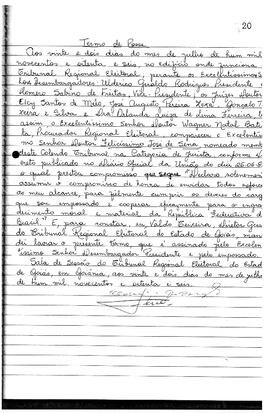 20
Termo de Posse
Aos vinte e dois dias do mes de julho de hum mil
novecentos e oitenta e seis, no edifício onde funciona
Tribunal Regional Eleitoral, perante os Excelentíssimos S
Desembargadores Ulderico Geraldo Rodrigues, Presidente
Homero Sabino de Freitas, Vice-Presidente, os Juízes
Elcy Santos de Melo, José Augusto Pereira Gonçalo T.
xeira e Silva e Orlanda Luiza de Lima Ferreira,
assim o Excelentíssimo Senhor Doutor Wagner Natal Bati
ta Procurador Regional Eleitoral, compareceu o Excelentís
mo Senhor Doutor Felicíssimo José de Sena, nomeado memb
deste Colendo Tribunal na Categoria de Jurista, conforme d
creto publicado no Diário Oficial da União, de
o qual prestou compromisso que segue: "Declaro solenemen
assumir o compromisso de honra de envidar todos esforç
ao meu alcance, para fielmente cumprir os deveres do carg
que sou empossado e cooperar eficazmente para o engra
decimento moral e material da República Federativa d
Brasil." E, para constar, eu Valdo Teixeira, Diretor Ger
do Tribunal Regional Eleitoral do Estado de Goiás, man
dei lavrar o presente Termo, que é assinado pelo Excelen
tíssimo Senhor Desembargador Presidente e pelo empossado.
Sala de Sessão do Tribunal Regional Eleitoral do Estado
de Goiás, em Goiânia, aos vinte e dois dias do mes de julho
de hum mil novecentos e oitenta e seis.